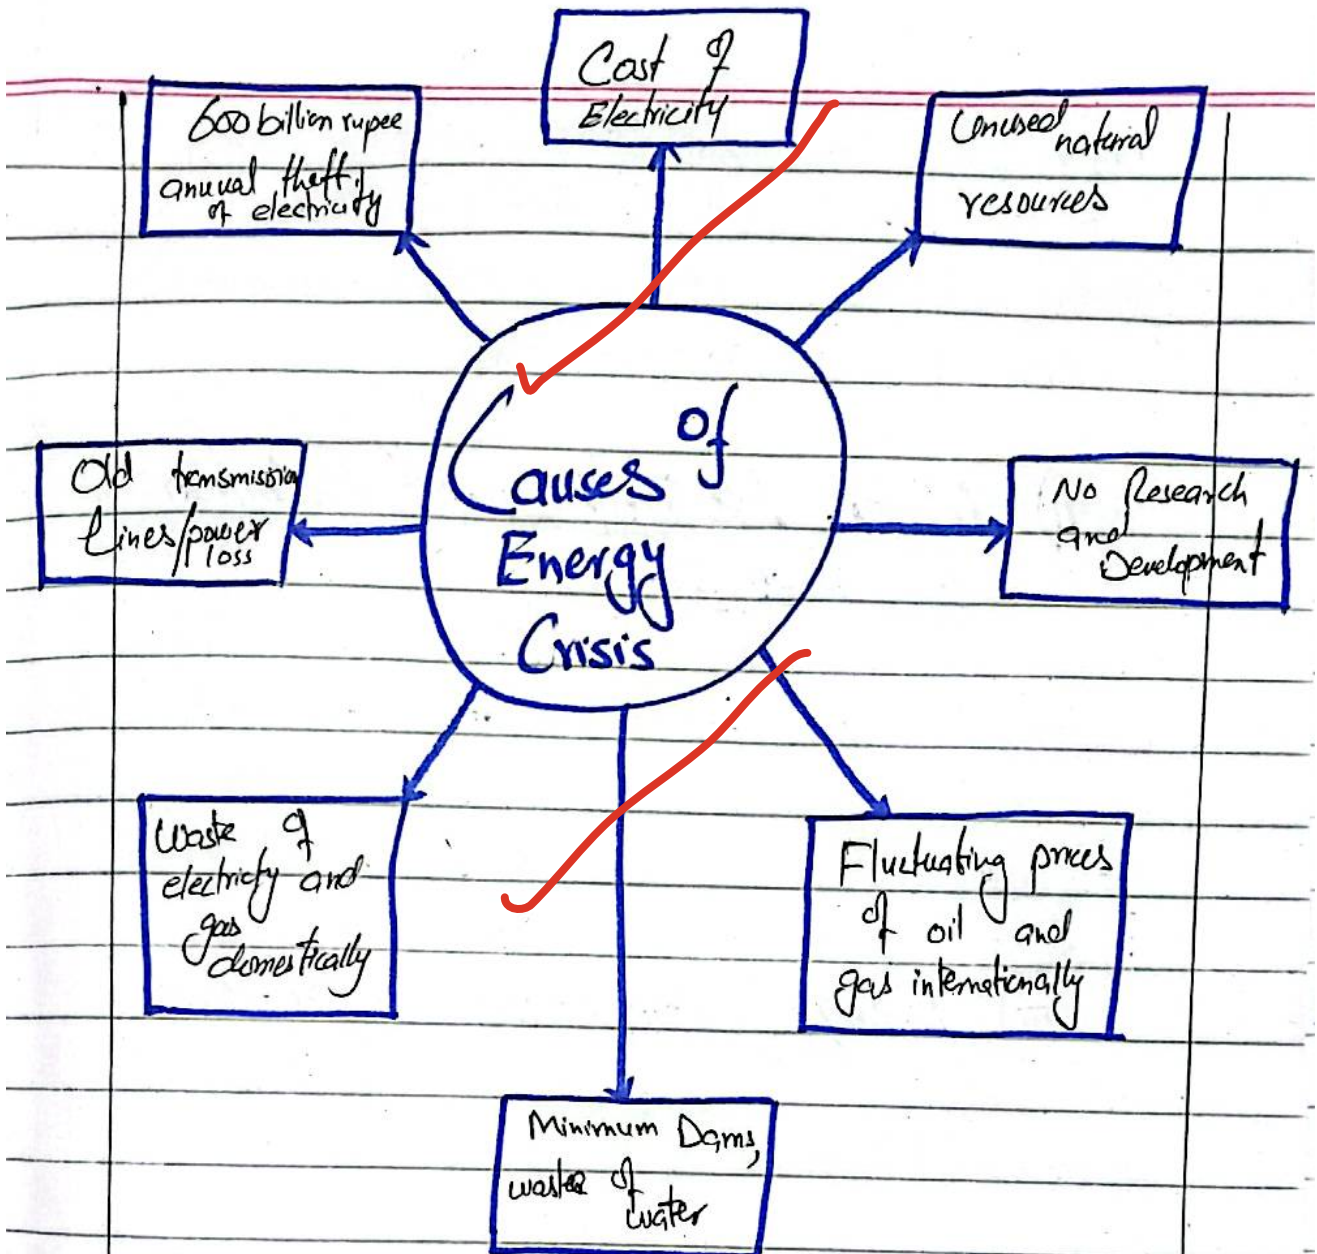 Cost of
Electricity
600 billion rupee
anuual theft
of electricity
Unused natural
resources
Causes of
Energy
Crisis
Old transmission
lines/power
loss
No Research
and
Development
Waste of
electricty and
gas
domestically
Fluctuating prices
of oil and
gas internationally
Minimum Dams,
waste of
water